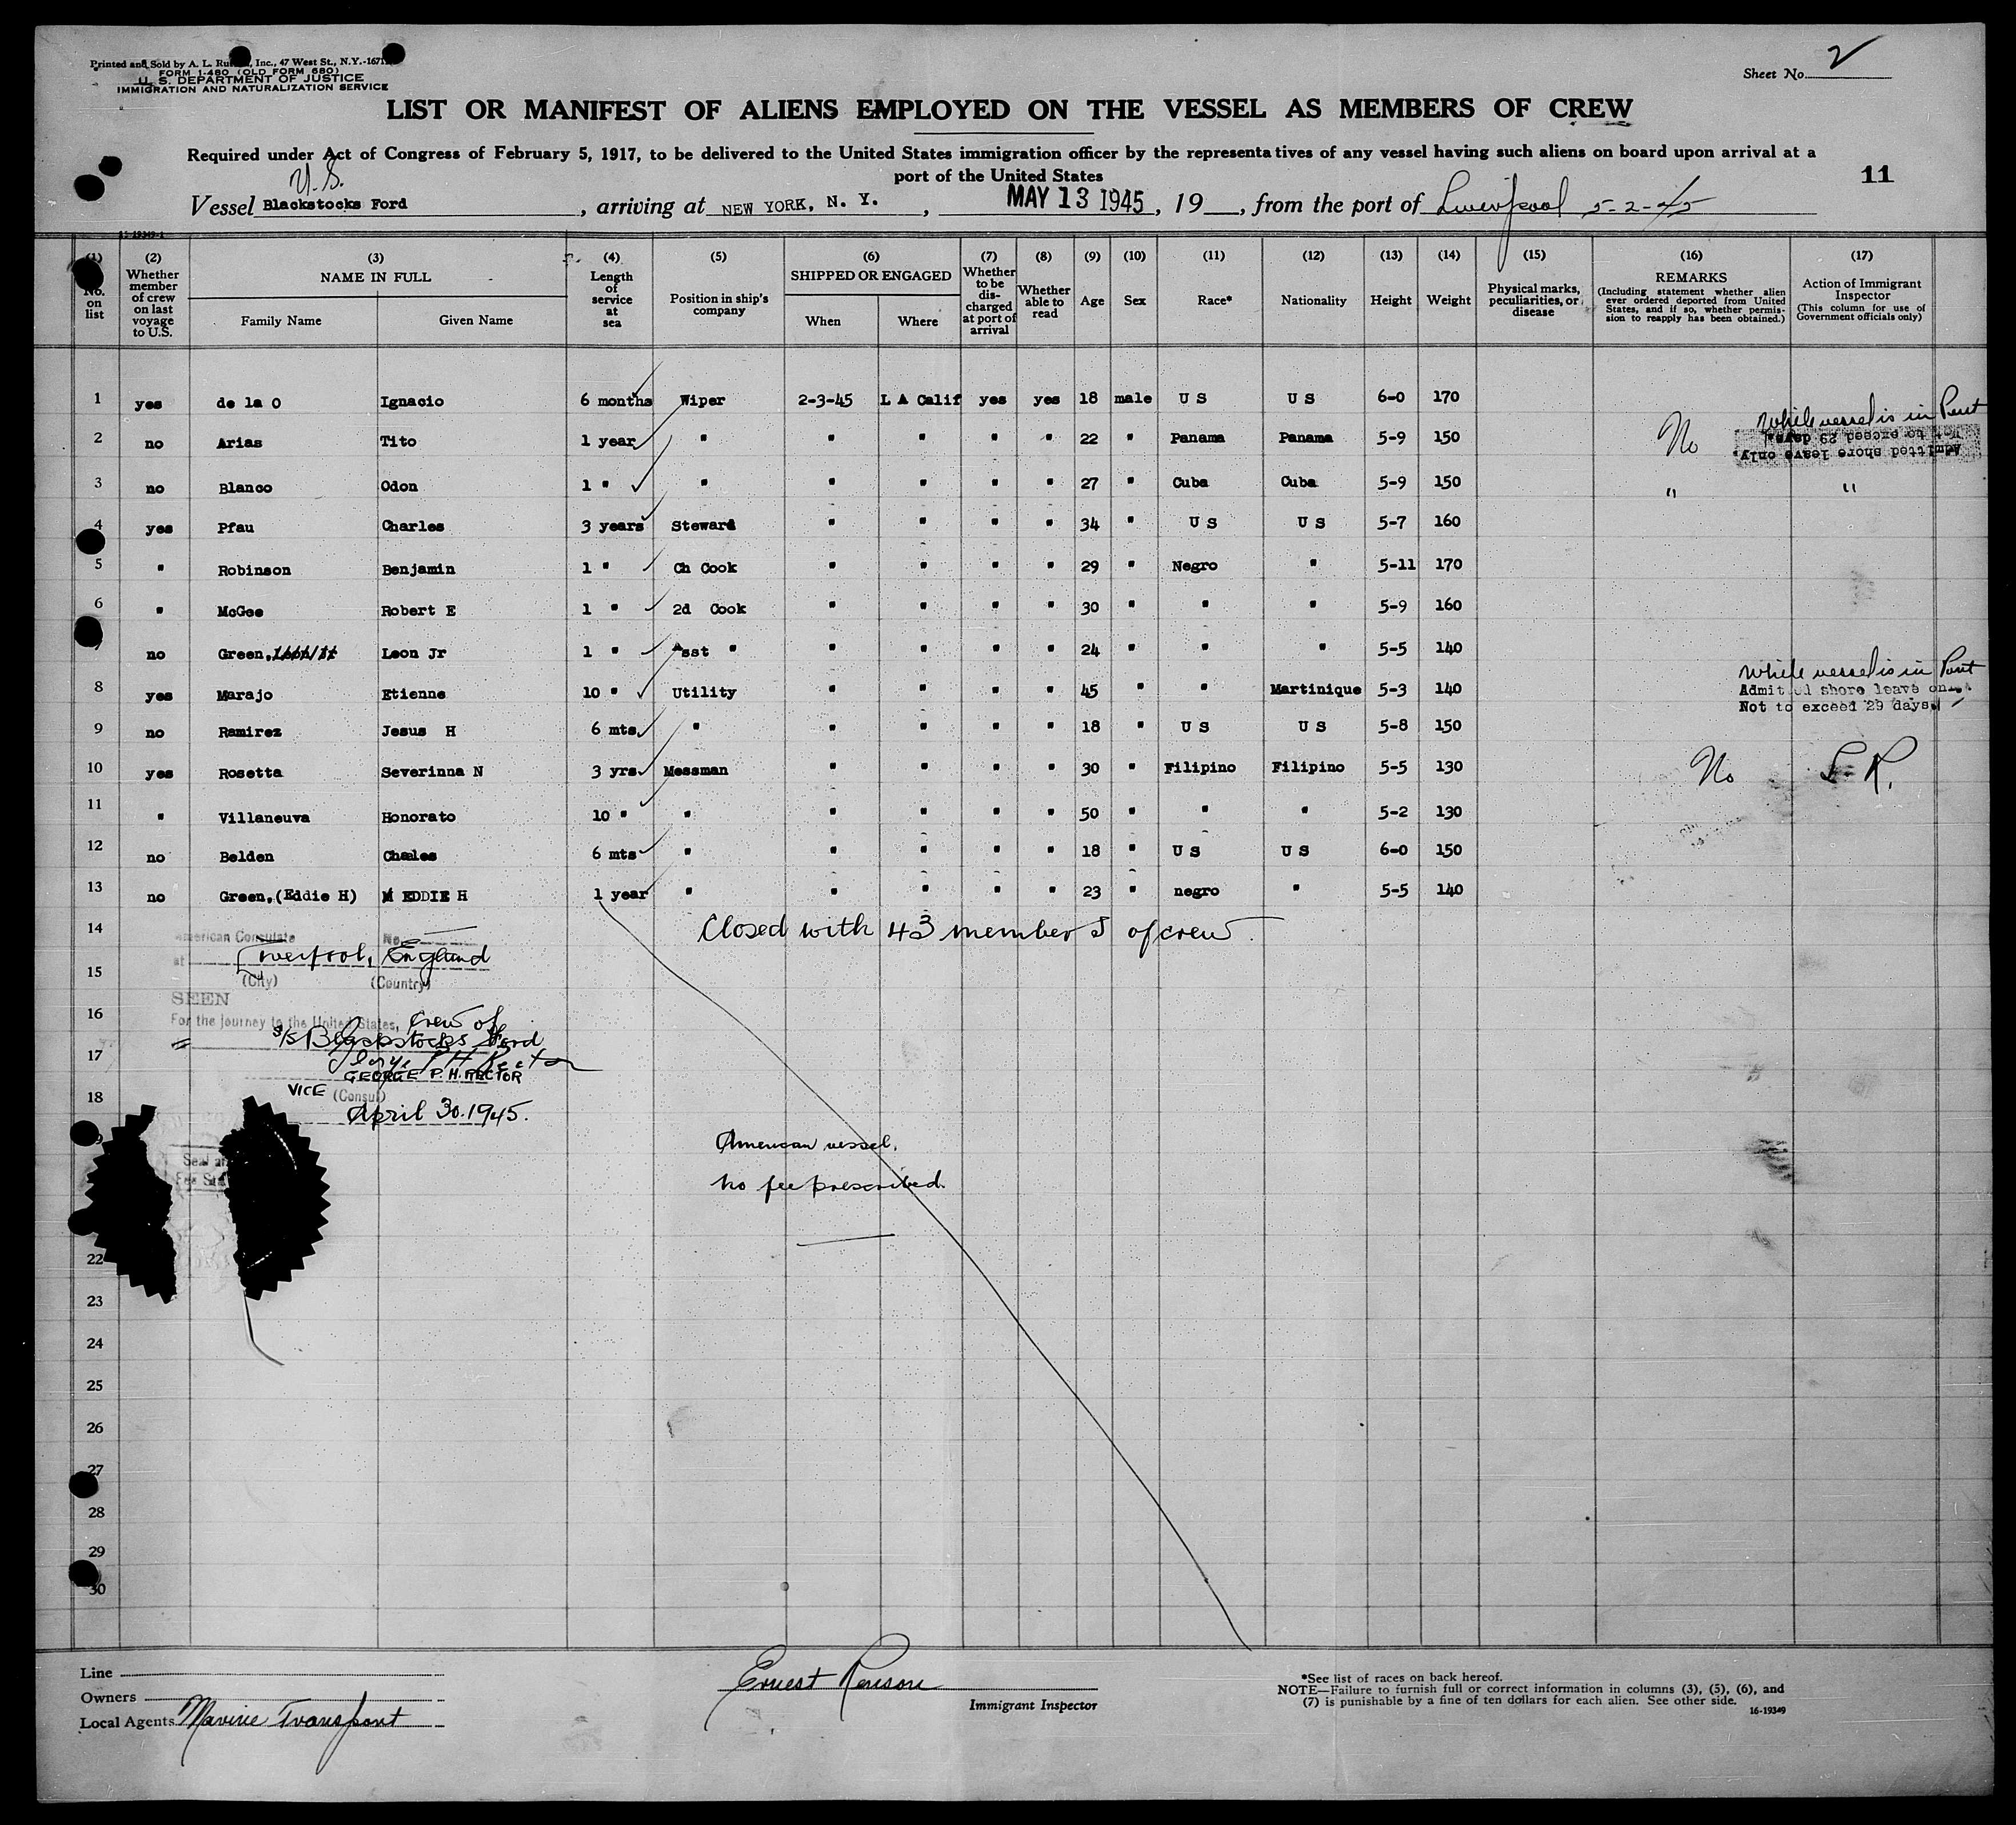 Printed and Sold by A. L. Inc., 47 West St., N.Y.
FORM I-480 (OLD FORM 680)
U. S. DEPARTMENT OF JUSTICE
IMMIGRATION AND NATURALIZATION SERVICE
Sheet No. 2
LIST OR MANIFEST OF ALIENS EMPLOYED ON THE VESSEL AS MEMBERS OF CREW
Required under Act of Congress of February 5, 1917, to be delivered to the United States immigration officer by the representatives of any vessel having such aliens on board upon arrival at a
port of the United States
11
U.S.
Vessel Blackstocks Ford, arriving at NEW YORK, N. Y., MAY 13 1945, 19__, from the port of Liverpool 5-2-45
16-19349-1
(1) No. on list
(2) Whether member of crew on last voyage to U.S.
(3) NAME IN FULL Family Name Given Name
(4) Length of service at sea
(5) Position in ship's company
(6) SHIPPED OR ENGAGED When Where
(7) Whether to be discharged at port of arrival
(8) Whether able to read
(9) Age
(10) Sex
(11) Race*
(12) Nationality
(13) Height
(14) Weight
(15) Physical marks, peculiarities, or disease
(16) REMARKS (Including statement whether alien ever ordered deported from United States, and if so, whether permission to reapply has been obtained.)
(17) Action of Immigrant Inspector (This column for use of Government officials only)
1 yes de la O Ignacio 6 months Wiper 2-3-45 L A Calif yes yes 18 male U S U S 6-0 170
While vessel is in Port
2 no Arias Tito 1 year " " " " " 22 " Panama Panama 5-9 150 No
Admitted shore leave only.
Not to exceed 29 days.
3 no Blanco Odon 1 " " " " " " 27 " Cuba Cuba 5-9 150 " "
4 yes Pfau Charles 3 years Steward " " " " 34 " U S U S 5-7 160
5 " Robinson Benjamin 1 " Ch Cook " " " " 29 " Negro " 5-11 170
6 " McGee Robert E 1 " 2d Cook " " " " 30 " " " 5-9 160
7 no Green, Leon Jr 1 " Asst " " " " " 24 " " " 5-5 140
While vessel is in Port
8 yes Marajo Etienne 10 " Utility " " " " 45 " " Martinique 5-3 140
Admitted shore leave only.
Not to exceed 29 days.
9 no Ramirez Jesus H 6 mts " " " " " 18 " U S U S 5-8 150
10 yes Rosetta Severinna N 3 yrs Messman " " " " 30 " Filipino Filipino 5-5 130 No S. R.
11 " Villaneuva Honorato 10 " " " " " " 50 " " " 5-2 130
12 no Belden Chales 6 mts " " " " " 18 " U S U S 6-0 150
13 no Green, (Eddie H) EDDIE H 1 year " " " " " 23 " negro " 5-5 140
14 Closed with 43 members of crew.
American Consulate No.
15 at Liverpool, England
(City) (Country)
SEEN
16 For the journey to the United States, Crew of
S/S Blackstocks Ford
17 George P H Rector
GEORGE P. H. RECTOR
18 VICE (Consul)
April 30. 1945.
American vessel.
no fee prescribed.
22
23
24
25
26
27
28
29
30
Line
Owners
Local Agents Marine Transport
Ernest Renson
Immigrant Inspector
*See list of races on back hereof.
NOTE—Failure to furnish full or correct information in columns (3), (5), (6), and
(7) is punishable by a fine of ten dollars for each alien. See other side.
16-19349